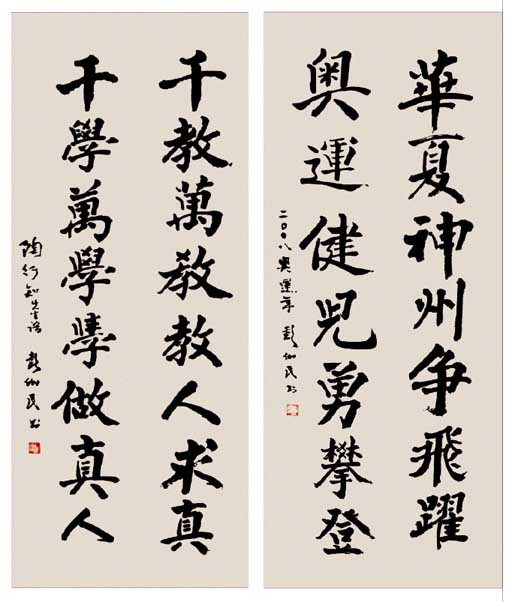 華夏神州争飛躍
奥運健兒勇攀登
二〇〇八奥運年 彭伽民书
千教萬教教人求真
千學萬學學做真人
陶行知先生語 彭伽民书